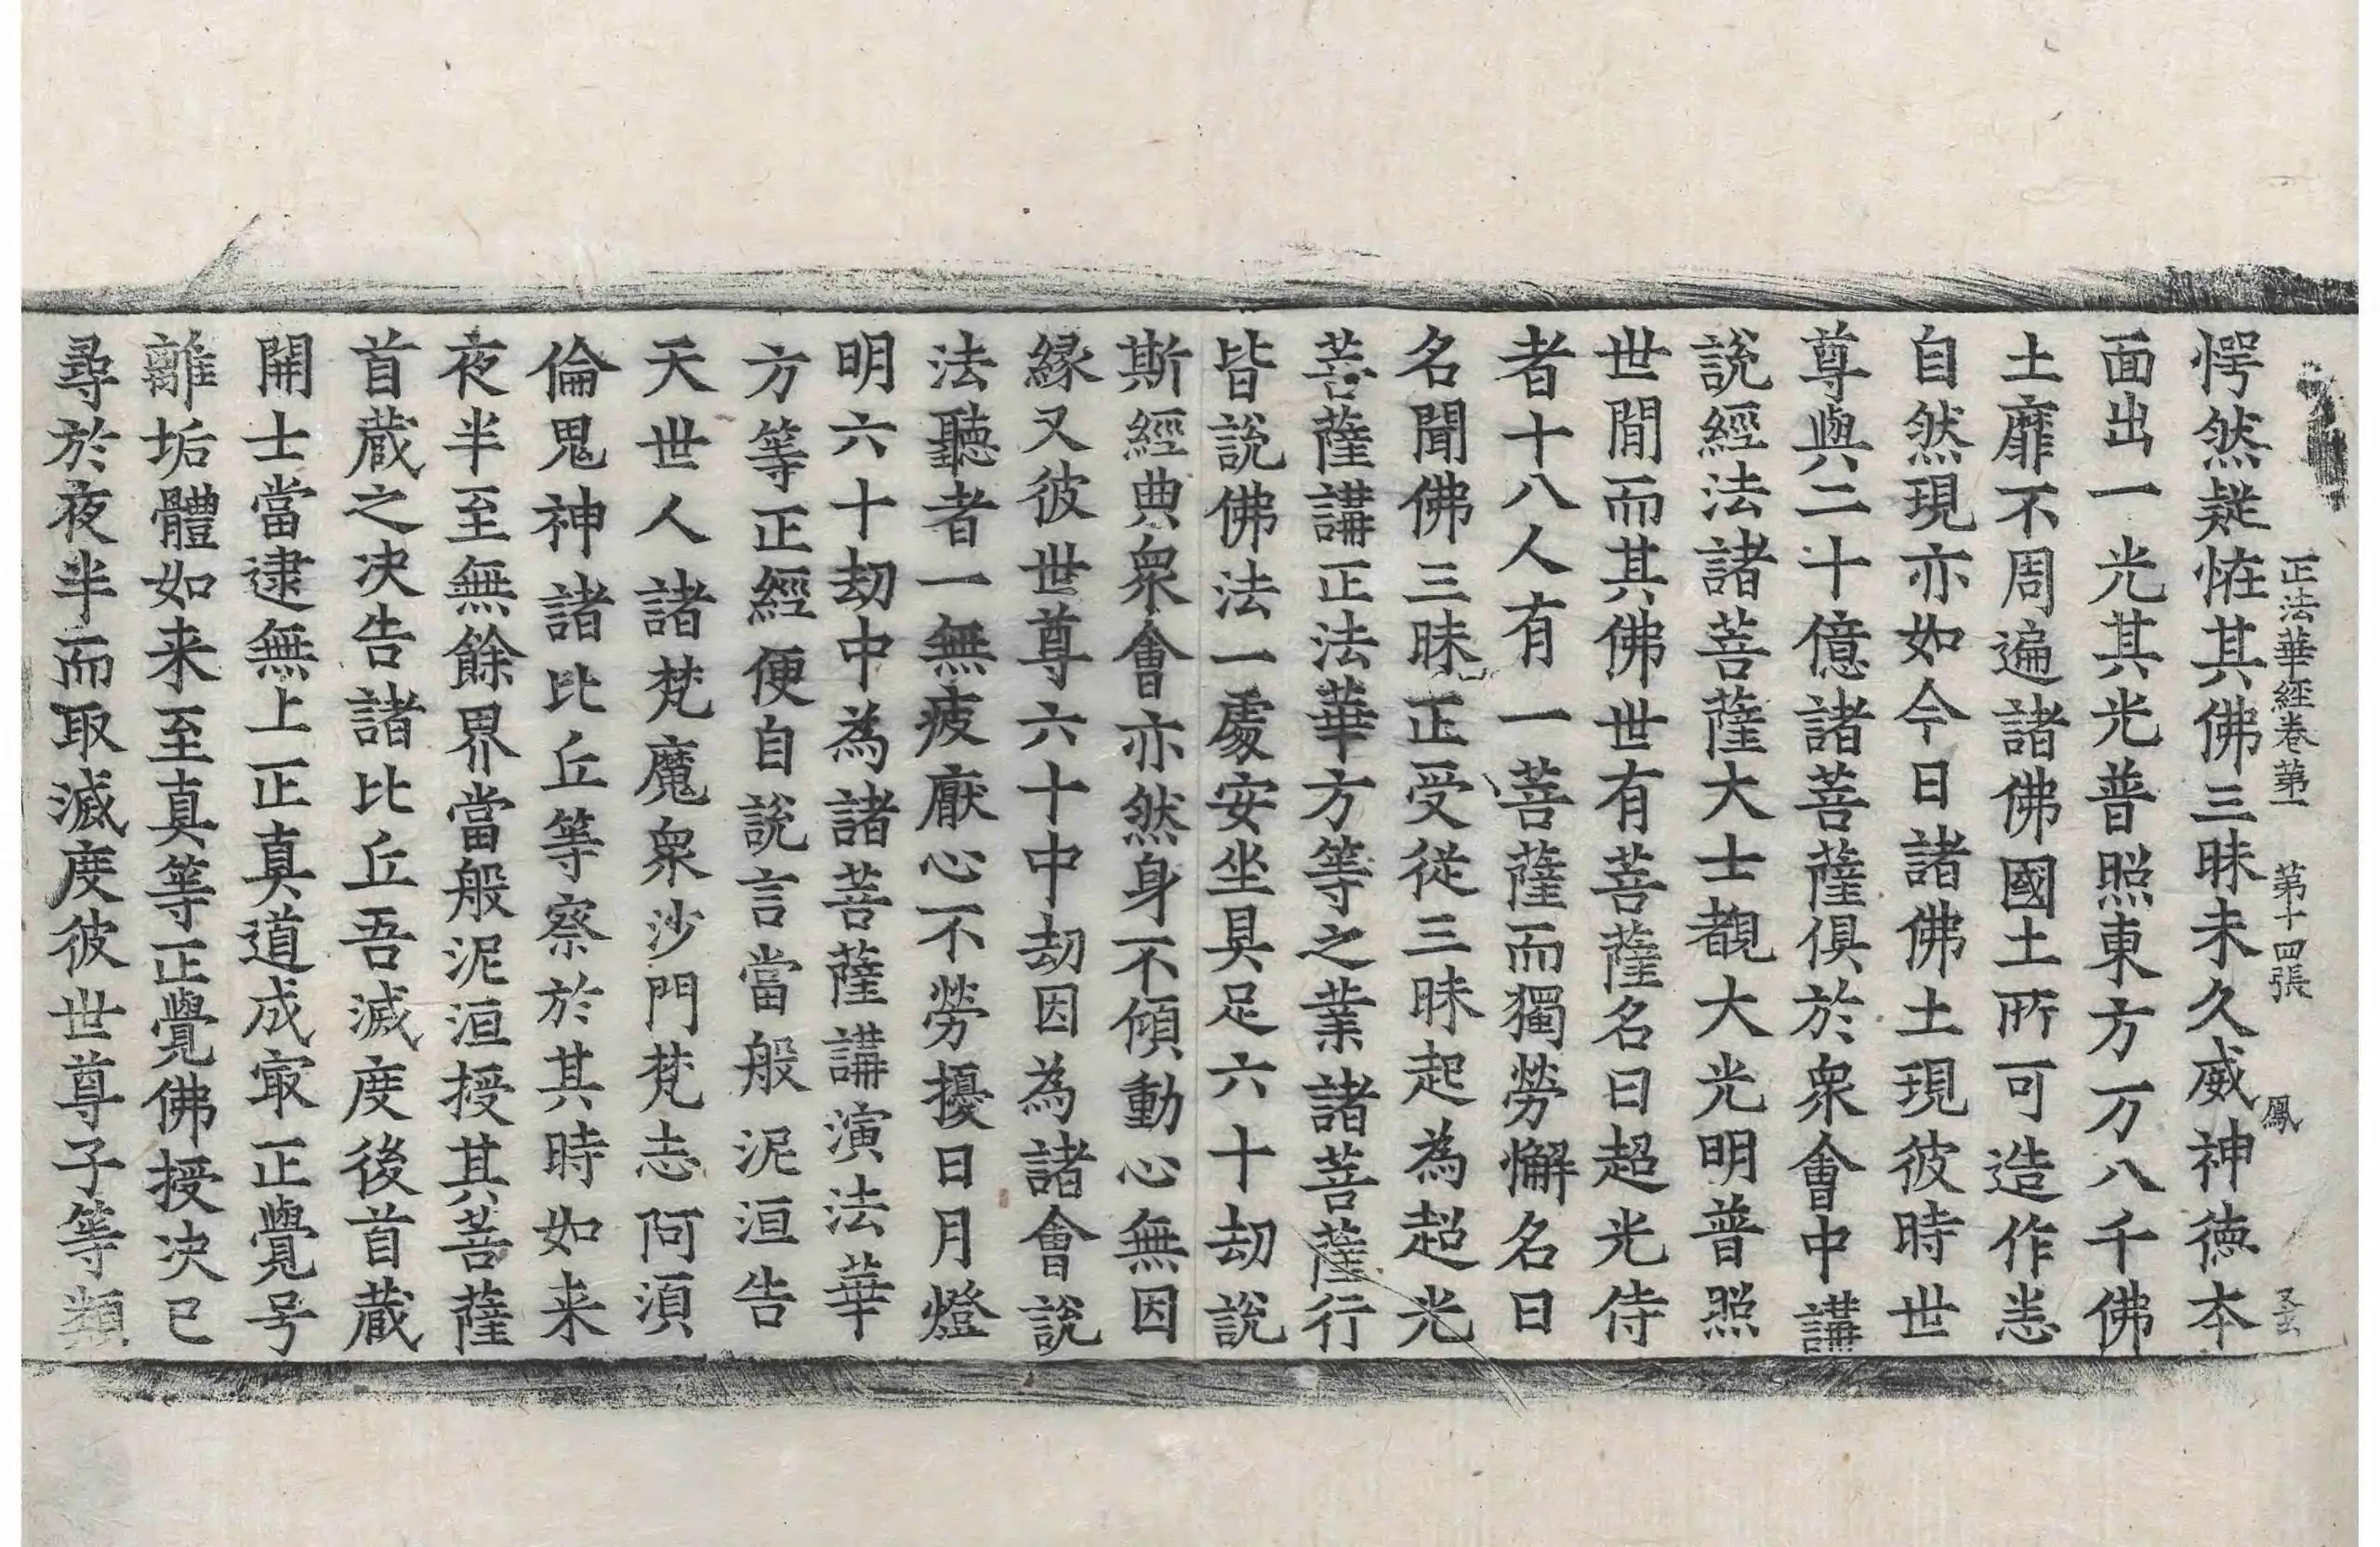 正法華經卷第一 第十四張 鳳
愕然疑恠其佛三昧未久威神德本
面出一光其光普照東方万八千佛
土靡不周遍諸佛國土所可造作悉
自然現亦如今日諸佛土現彼時世
尊與二十億諸菩薩俱於衆會中講
說經法諸菩薩大士覩大光明普照
世間而其佛世有菩薩名曰超光侍
者十八人有一菩薩而獨勞懈名曰
名聞佛三昧正受從三昧起為超光
菩薩講正法華方等之業諸菩薩行
皆說佛法一處安坐具足六十劫說
斯經典衆會亦然身不傾動心無因
緣又彼世尊六十中劫因為諸會說
法聽者一無疲厭心不勞擾日月燈
明六十劫中為諸菩薩講演法華
方等正經便自說言當般泥洹告
天世人諸梵魔衆沙門梵志阿須
倫鬼神諸比丘等察於其時如来
夜半至無餘界當般泥洹授其菩薩
首藏之决告諸比丘吾滅度後首藏
開士當逮無上正真道成寂正覺号
離垢體如来至真等正覺佛授决已
尋於夜半而取滅度彼世尊子等類